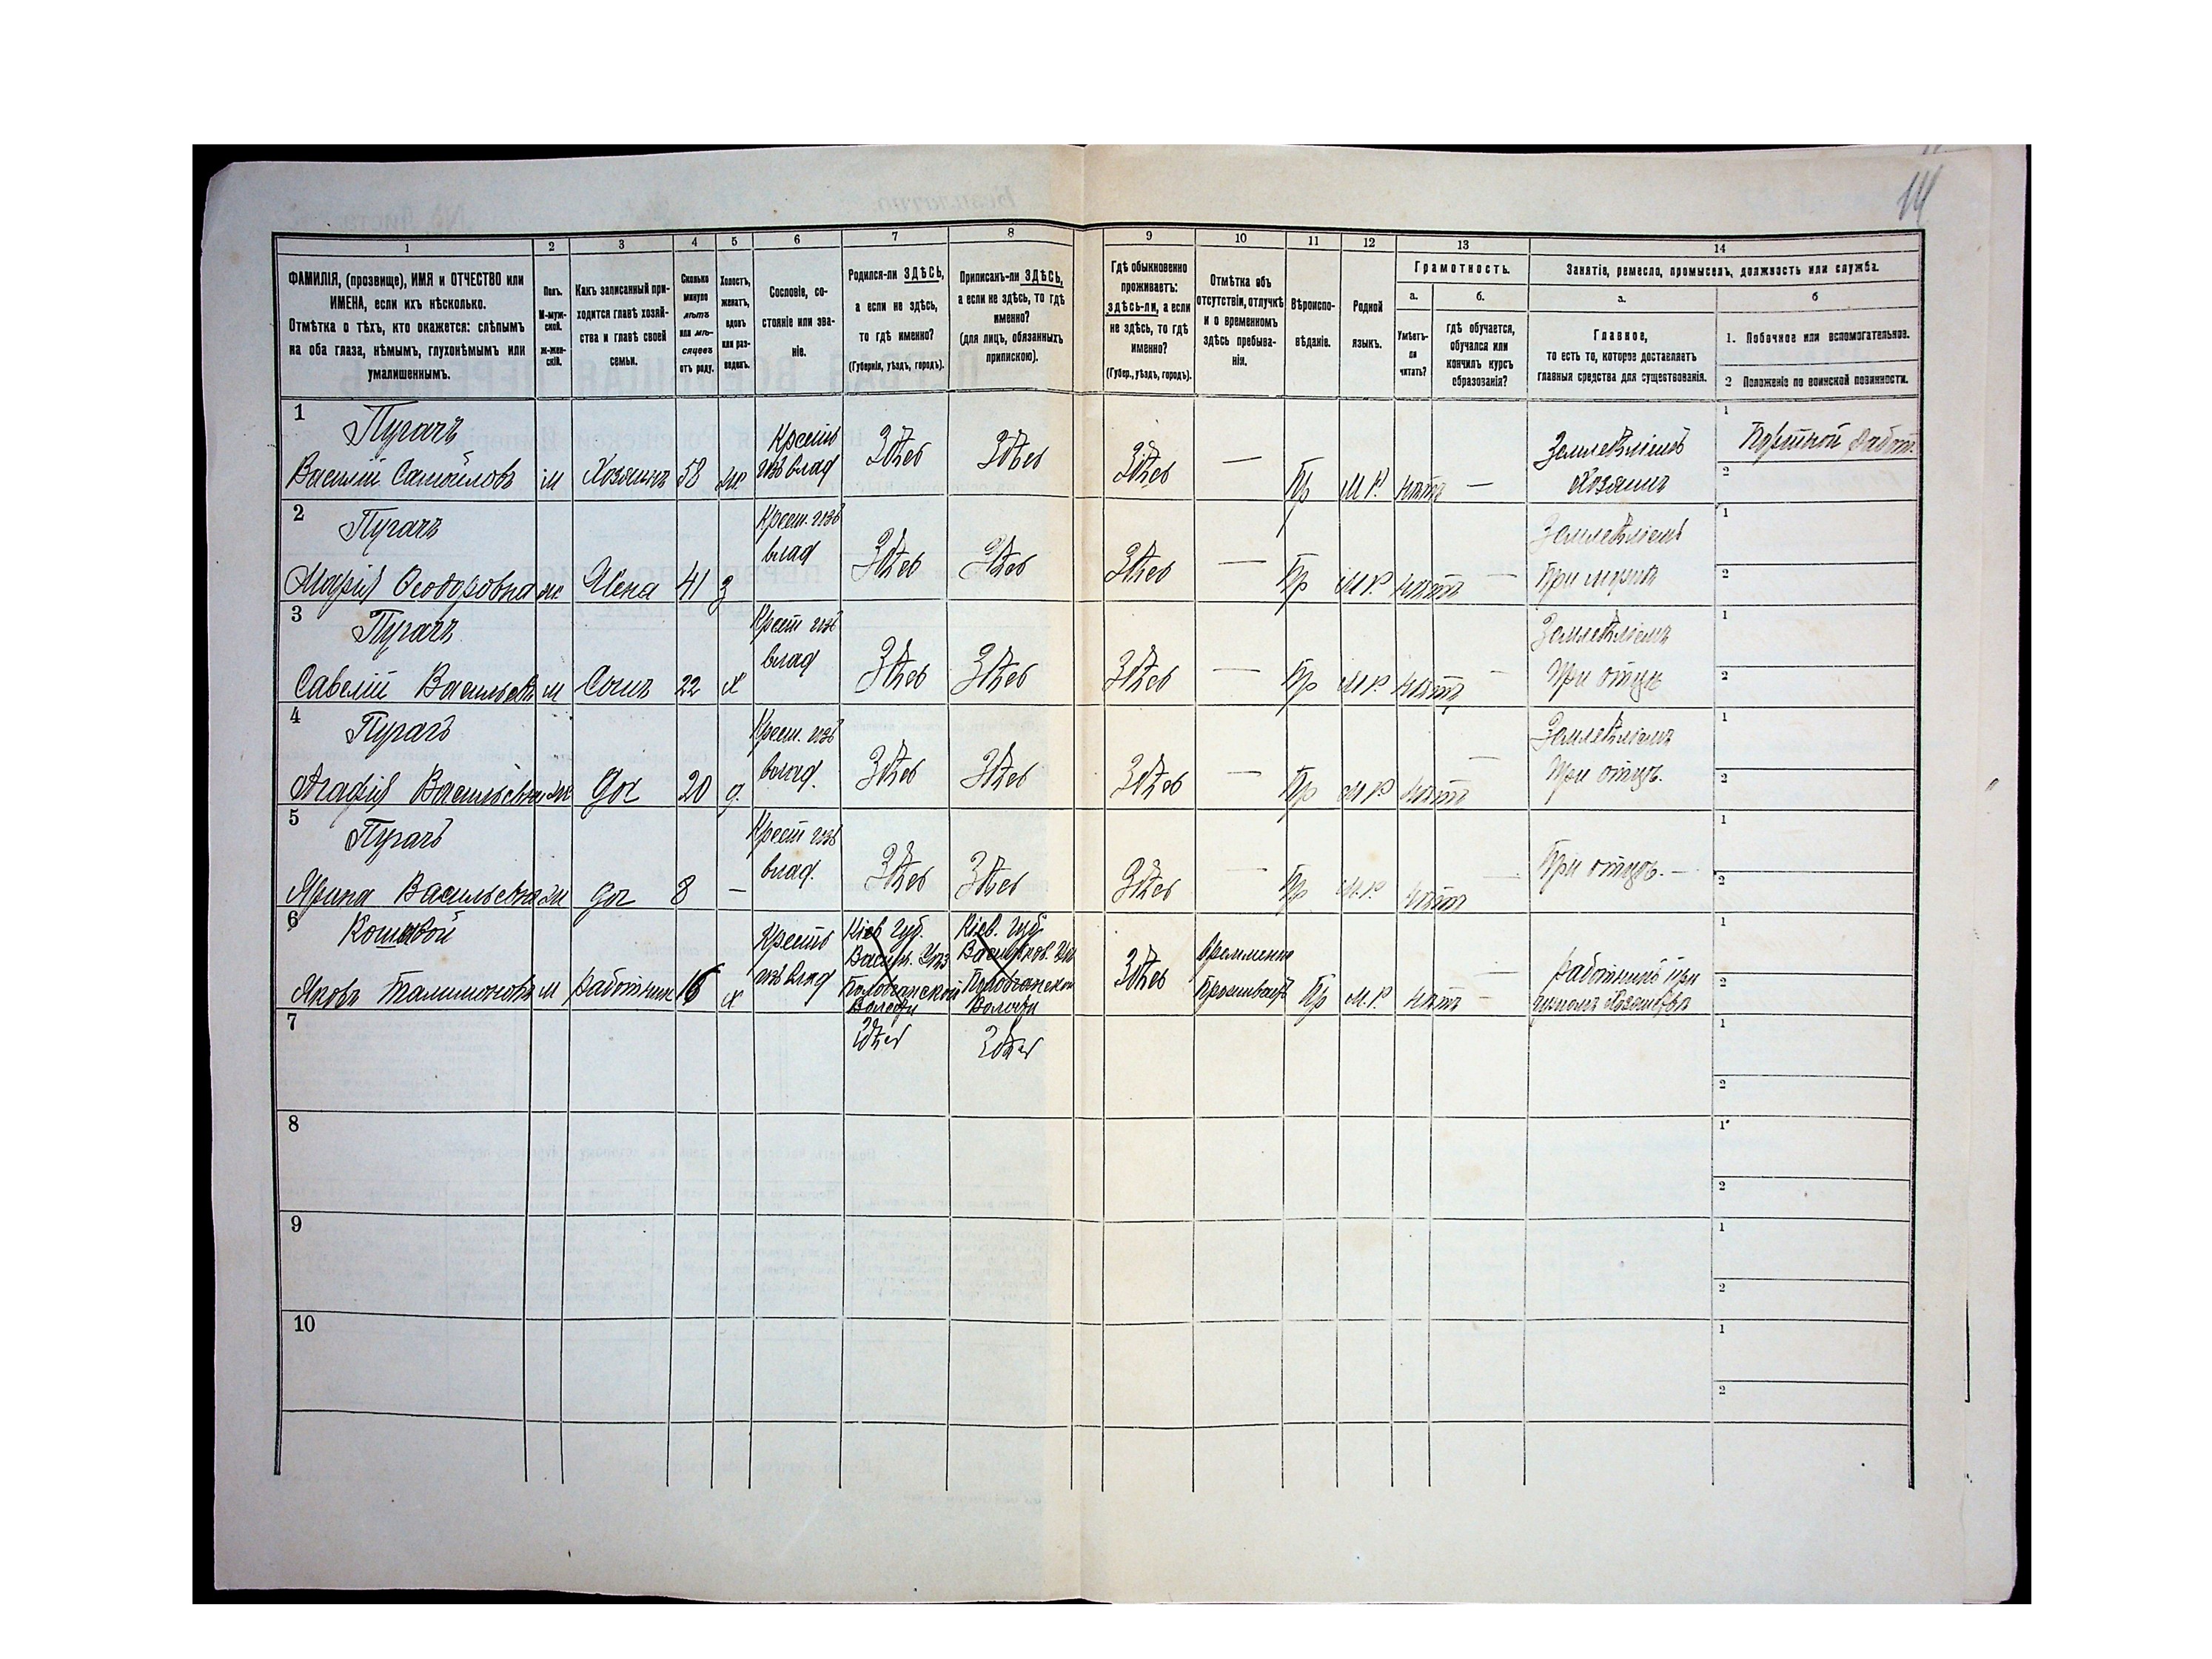 14
1 2 3 4 5 6 7 8 9 10 11 12 13 14
ФАМИЛІЯ, (прозвище), ИМЯ и ОТЧЕСТВО или
ИМЕНА, если ихъ нѣсколько.
Отмѣтка о тѣхъ, кто окажется: слѣпымъ
на оба глаза, нѣмымъ, глухонѣмымъ или
умалишеннымъ.
Полъ.
М-муж-
ской.
ж-жен-
скій.
Какъ записанный при-
ходится главѣ хозяй-
ства и главѣ своей
семьи.
Сколько
минуло
лѣтъ
или мѣ-
сяцевъ
отъ роду.
Холостъ,
женатъ,
вдовъ
или раз-
веденъ.
Сословіе, со-
стояніе или зва-
ніе.
Родился-ли ЗДѢСЬ,
а если не здѣсь,
то гдѣ именно?
(Губернія, уѣздъ, городъ).
Приписанъ-ли ЗДѢСЬ,
а если не здѣсь, то гдѣ
именно?
(для лицъ, обязанныхъ
припискою).
Гдѣ обыкновенно
проживаетъ:
здѣсь-ли, а если
не здѣсь, то гдѣ
именно?
(Губер., уѣздъ, городъ).
Отмѣтка объ
отсутствіи, отлучкѣ
и о временномъ
здѣсь пребыва-
ніи.
Вѣроиспо-
вѣданіе.
Родной
языкъ.
Грамотность.
а.
Умѣетъ-
ли
читать?
б.
гдѣ обучается,
обучался или
кончилъ курсъ
образованія?
Занятіе, ремесло, промыселъ, должность или служба.
а.
Главное,
то есть то, которое доставляетъ
главныя средства для существованія.
б
1. Побочное или вспомогательное.
2 Положеніе по воинской повинности.
1 Пугачъ
Василій Самойловъ м Хозяинъ 58 ж Крестъ изъ влад Здѣсь Здѣсь Здѣсь — Пр М Р. нѣтъ — Земледѣліемъ Хозяинъ 1 Портной 2
2 Пугачъ
Марія Феодоровна ж Жена 41 з Крест. изъ влад Здѣсь Здѣсь Здѣсь — Пр М Р. нѣтъ — Земледѣліемъ При мужѣ 1 2
3 Пугачъ
Савелій м Сынъ 22 х Крест изъ влад Здѣсь Здѣсь Здѣсь — Пр М Р нѣтъ — Земледѣліемъ При отцѣ 1 2
4 Пугачъ
Агафія Васильевна ж Доч 20 д. Крест. изъ влад. Здѣсь Здѣсь Здѣсь — Пр М Р нѣтъ — Земледѣліемъ При отцѣ. 1 2
5 Пугачъ
Ярина Васильевна ж Доч 8 — Крест изъ влад. Здѣсь Здѣсь Здѣсь — Пр М. Р. нѣтъ — При отцѣ. — 1 2
6 Кошевой
Яковъ м работникъ 16 х Крестъ изъ влад
Кіев Губ.
Васильк. Уѣз
Волости
Здѣсь
Кіев. Губ.
Васильков. Уѣз
Волости
Здѣсь
Здѣсь
Временно
Проживаетъ
Пр М. Р. нѣтъ — Работникъ При 1 2
7 1 2
8 1 2
9 1 2
10 1 2